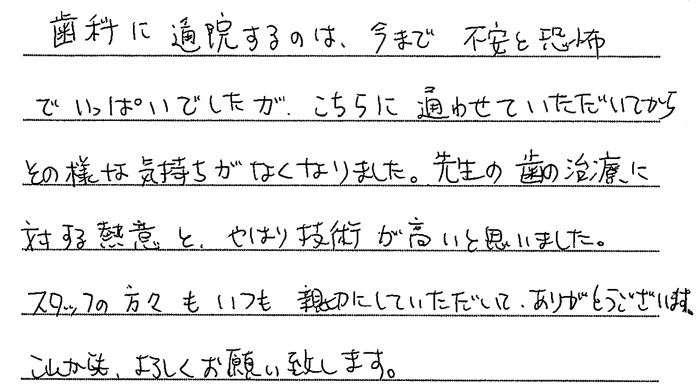 歯科に通院するのは、今まで不安と恐怖
でいっぱいでしたが、こちらに通わせていただいてから
その様な気持ちがなくなりました。先生の歯の治療に
対する熱意と、やはり技術が高いと思いました。
スタッフの方々もいつも親切にしていただいて、ありがとうございます。
これからも、よろしくお願い致します。